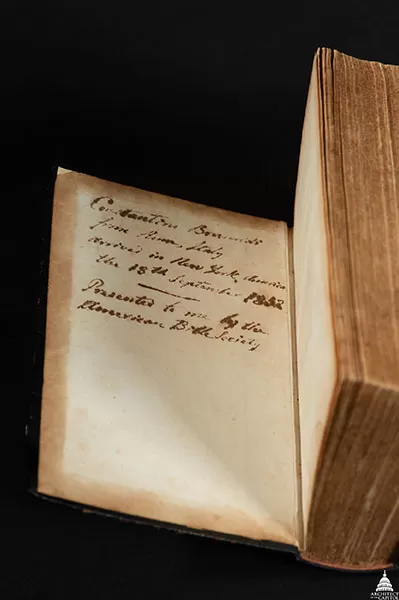 Constantino Brumidi
from Rome, Italy
arrived in New York, America
the 18th September 1852
Presented to me by the
American Bible Society
ARCHITECT
OF THE
CAPITOL